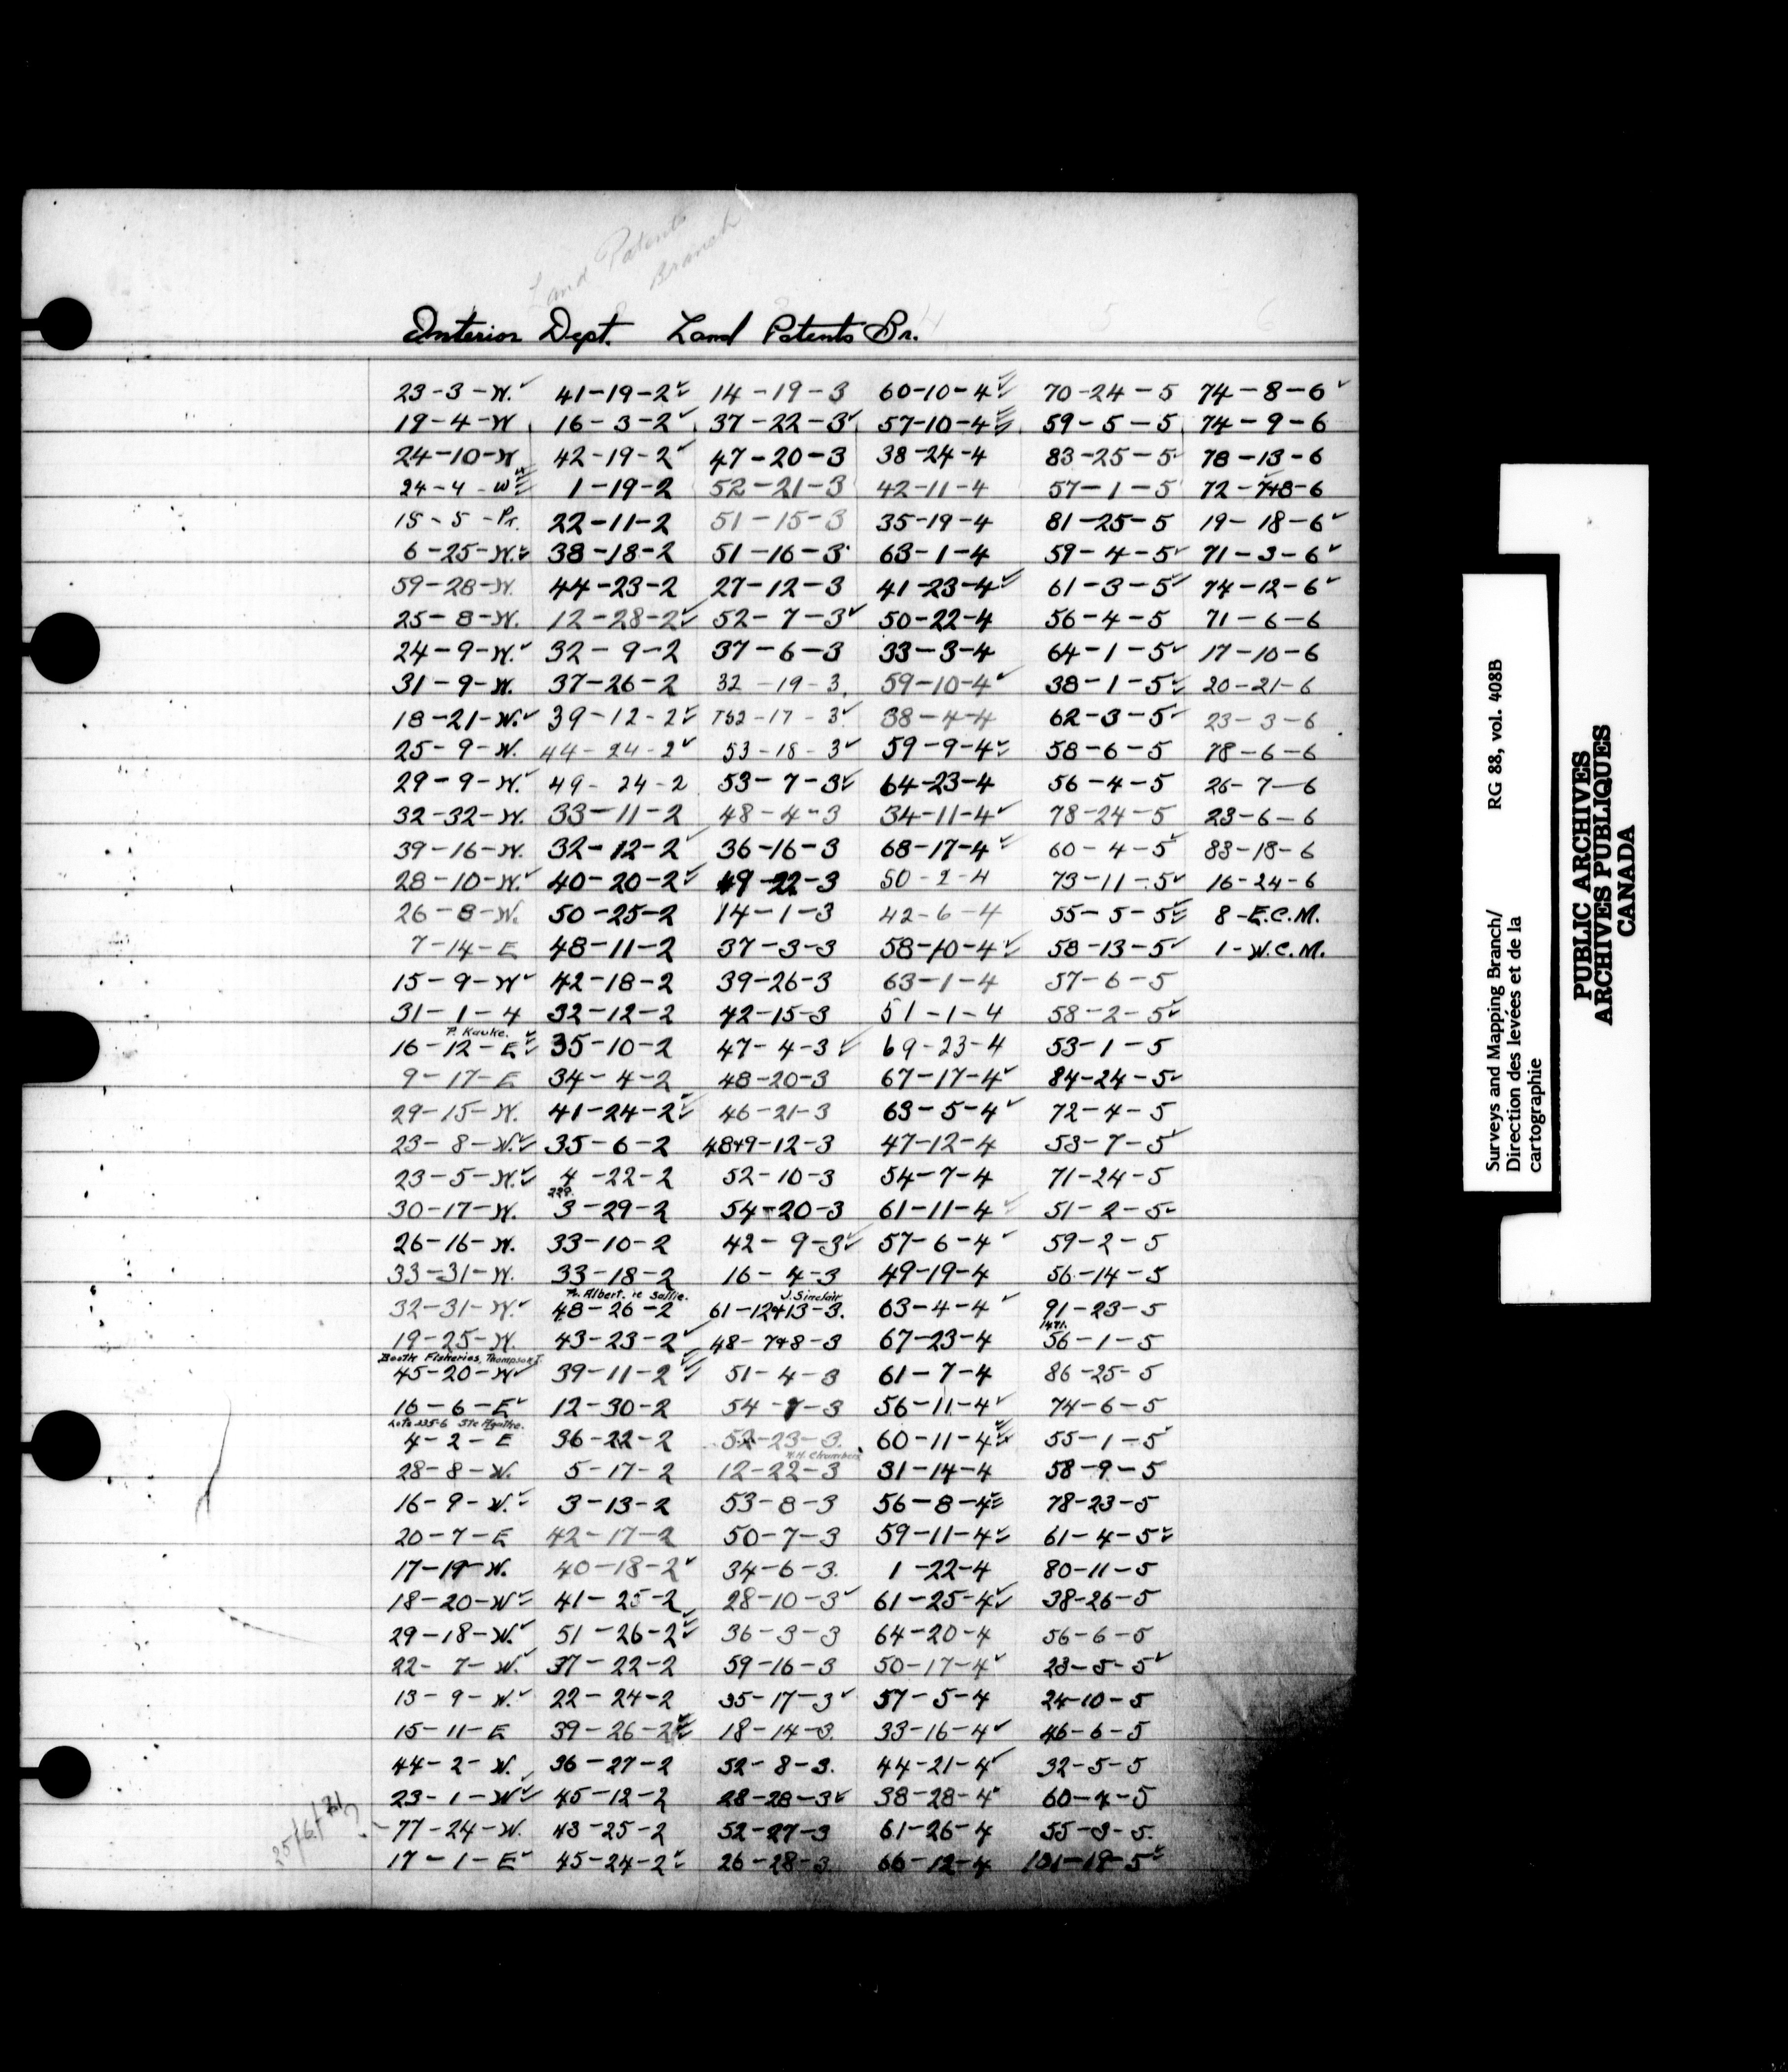 Land Patents
Branch
4 5 6
Interior Dept. Land Patents Br.
23-3-W. ✓ 41-19-2 ✓ 14-19-3 60-10-4 ✓ 70-24-5 74-8-6 ✓
19-4-W 16-3-2 ✓ 37-22-3 ✓ 57-10-4 ✓ 59-5-5 74-9-6
24-10-W 42-19-2 ✓ 47-20-3 38-24-4 83-25-5 78-13-6
24-4-W ✓ 1-19-2 52-21-3 42-11-4 57-1-5 72-7+8-6
15-5-Pr. 22-11-2 51-15-3 35-19-4 81-25-5 19-18-6 ✓
6-25-W. ✓ 38-18-2 51-16-3 63-1-4 59-4-5 ✓ 71-3-6 ✓
59-28-W. 44-23-2 27-12-3 41-23-4 ✓ 61-3-5 ✓ 74-12-6 ✓
25-8-W. 12-28-2 ✓ 52-7-3 ✓ 50-22-4 56-4-5 71-6-6
24-9-W. ✓ 32-9-2 37-6-3 33-3-4 64-1-5 ✓ 17-10-6
31-9-W. 37-26-2 32-19-3. 59-10-4 ✓ 38-1-5 ✓ 20-21-6
18-21-W. ✓ 39-12-2 ✓ T52-17-3 ✓ 38-4-4 62-3-5 ✓ 23-3-6
25-9-W. 44-24-2 ✓ 53-18-3 ✓ 59-9-4 ✓ 58-6-5 78-6-6
29-9-W. ✓ 49-24-2 53-7-3 ✓ 64-23-4 56-4-5 26-7-6
32-32-W. 33-11-2 48-4-3 34-11-4 ✓ 78-24-5 23-6-6
39-16-W. 32-12-2 ✓ 36-16-3 68-17-4 ✓ 60-4-5 ✓ 83-18-6
28-10-W. ✓ 40-20-2 ✓ 49-22-3 50-2-4 73-11-5 ✓ 16-24-6
26-8-W. 50-25-2 14-1-3 42-6-4 55-5-5 ✓ 8-E.C.M.
7-14-E 48-11-2 37-3-3 58-10-4 ✓ 58-13-5 ✓ 1-W.C.M.
15-9-W ✓ 42-18-2 39-26-3 63-1-4 57-6-5
31-1-4 32-12-2 42-15-3 51-1-4 58-2-5 ✓
P. Kauke.
16-12-E ✓ 35-10-2 47-4-3 ✓ 69-23-4 53-1-5
9-17-E 34-4-2 48-20-3 67-17-4 ✓ 84-24-5 ✓
29-15-W. 41-24-2 ✓ 46-21-3 63-5-4 ✓ 72-4-5
23-8-W. ✓ 35-6-2 48+9-12-3 47-12-4 53-7-5 ✓
23-5-W. ✓ 4-22-2 52-10-3 54-7-4 71-24-5
229.
30-17-W. 3-29-2 54-20-3 61-11-4 ✓ 51-2-5 ✓
26-16-W. 33-10-2 42-9-3 ✓ 57-6-4 ✓ 59-2-5
33-31-W. 33-18-2 16-4-3 49-19-4 56-14-5
Pr. Albert. re Sallie. J. Sinclair
32-31-W. ✓ 48-26-2 61-12+13-3. 63-4-4 ✓ 91-23-5
1471.
19-25-W. 43-23-2 ✓ 48-7+8-3 67-23-4 56-1-5
Booth Fisheries, Thompson I.
45-20-W ✓ 39-11-2 ✓ 51-4-3 61-7-4 86-25-5
16-6-E ✓ 12-30-2 54-7-3 56-11-4 ✓ 74-6-5
Lots 235-6 Ste Agathe.
4-2-E 36-22-2 52-23-3. 60-11-4 ✓ 55-1-5
28-8-W. 5-17-2 12-22-3 31-14-4 58-9-5
16-9-W. ✓ 3-13-2 53-8-3 56-8-4 ✓ 78-23-5
20-7-E 42-17-2 50-7-3 59-11-4 ✓ 61-4-5 ✓
17-19-W. 40-18-2 ✓ 34-6-3. 1-22-4 80-11-5
18-20-W ✓ 41-25-2 28-10-3 ✓ 61-25-4 ✓ 38-26-5
29-18-W. ✓ 51-26-2 ✓ 36-3-3 64-20-4 56-6-5
22-7-W. ✓ 37-22-2 59-16-3 50-17-4 ✓ 23-5-5 ✓
13-9-W. ✓ 22-24-2 35-17-3 ✓ 57-5-4 24-10-5
15-11-E 39-26-2 ✓ 18-14-3. 33-16-4 ✓ 46-6-5
44-2-W. 36-27-2 52-8-3. 44-21-4 ✓ 32-5-5
23-1-W ✓ 45-12-2 28-28-3 ✓ 38-28-4 60-4-5
77-24-W. 43-25-2 52-27-3 61-26-4 55-3-5.
17-1-E ✓ 45-24-2 ✓ 26-28-3 66-12-4 101-19-5 ✓
Surveys and Mapping Branch/ RG 88, vol. 408B
Direction des levées et de la
cartographie
PUBLIC ARCHIVES
ARCHIVES PUBLIQUES
CANADA